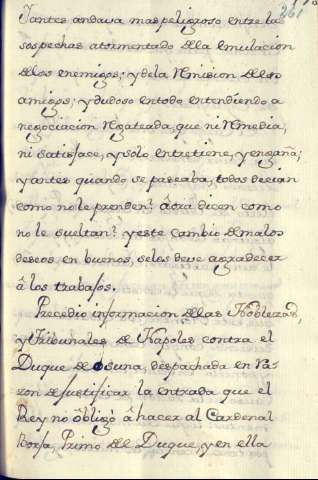 261
Y antes andava mas peligroso entre las
sospechas atormentado dla emulacion
dlos enemigos; y dela Remision dlos
amigos; y dudoso en todo entendiendo a
negociacion Regateada, que ni Remedia,
ni satisface, y solo entretiene, y engaña;
y antes quando se paseaba, todos decian
como no le prenden? áora dicen como
no le sueltan? y este cambio de malos
deseos en buenos, se les deve agradecer
â los trabajos.
Precedio informacion dlas Noblezas,
y Tribunales de Napoles contra el
Duque de Osuna, despachada en Ra-
zon de justificar la entrada que el
Rey no ôbligó â hacer al Cardenal
Borja, Primo del Duque, y en ella